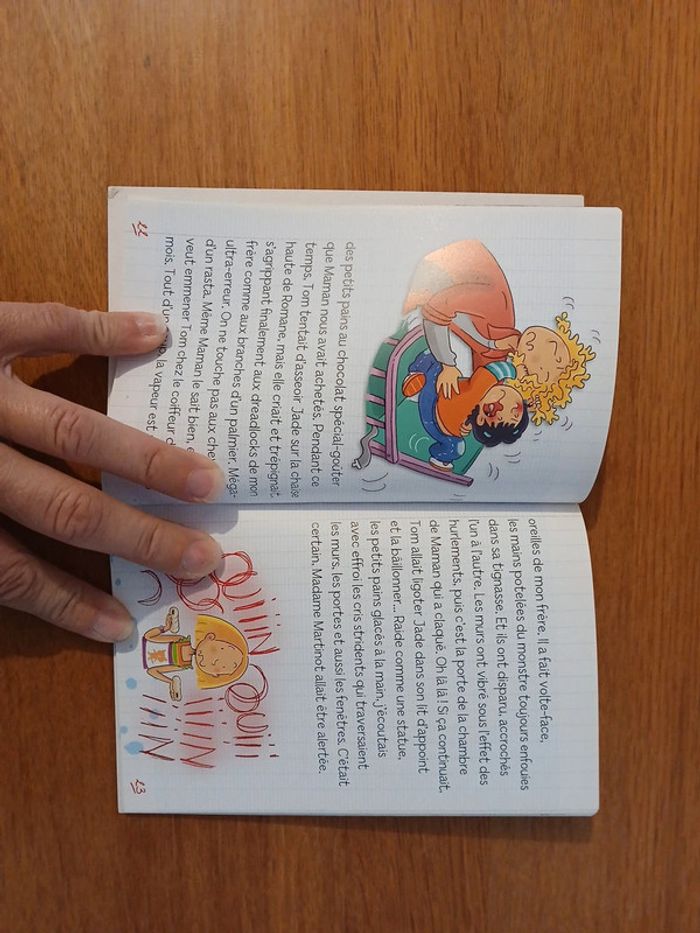 des petits pains au chocolat spécial-goûter
que Maman nous avait achetés. Pendant ce
temps, Tom tentait d'asseoir Jade sur la chaise
haute de Romane, mais elle criait et trépignait
s'agrippant finalement aux dreadlocks de mon
frère comme aux branches d'un palmier. Méga-
ultra-erreur. On ne touche pas aux
d'un rasta. Même Maman le sait bien,
veut emmener Tom chez le coiffeur
mois. Tout la vapeur est
12
oreilles de mon frère. Il a fait volte-face,
les mains potelées du monstre toujours enfouies
dans sa tignasse. Et ils ont disparu, accrochés
l'un à l'autre. Les murs ont vibré sous l'effet des
hurlements, puis c'est la porte de la chambre
de Maman qui a claqué. Oh là là ! Si ça continuait,
Tom allait ligoter Jade dans son lit d'appoint
et la bâillonner... Raide comme une statue,
les petits pains glacés à la main, j'écoutais
avec effroi les cris stridents qui traversaient
les murs, les portes et aussi les fenêtres. C'était
certain, Madame Martinot allait être alertée.
13